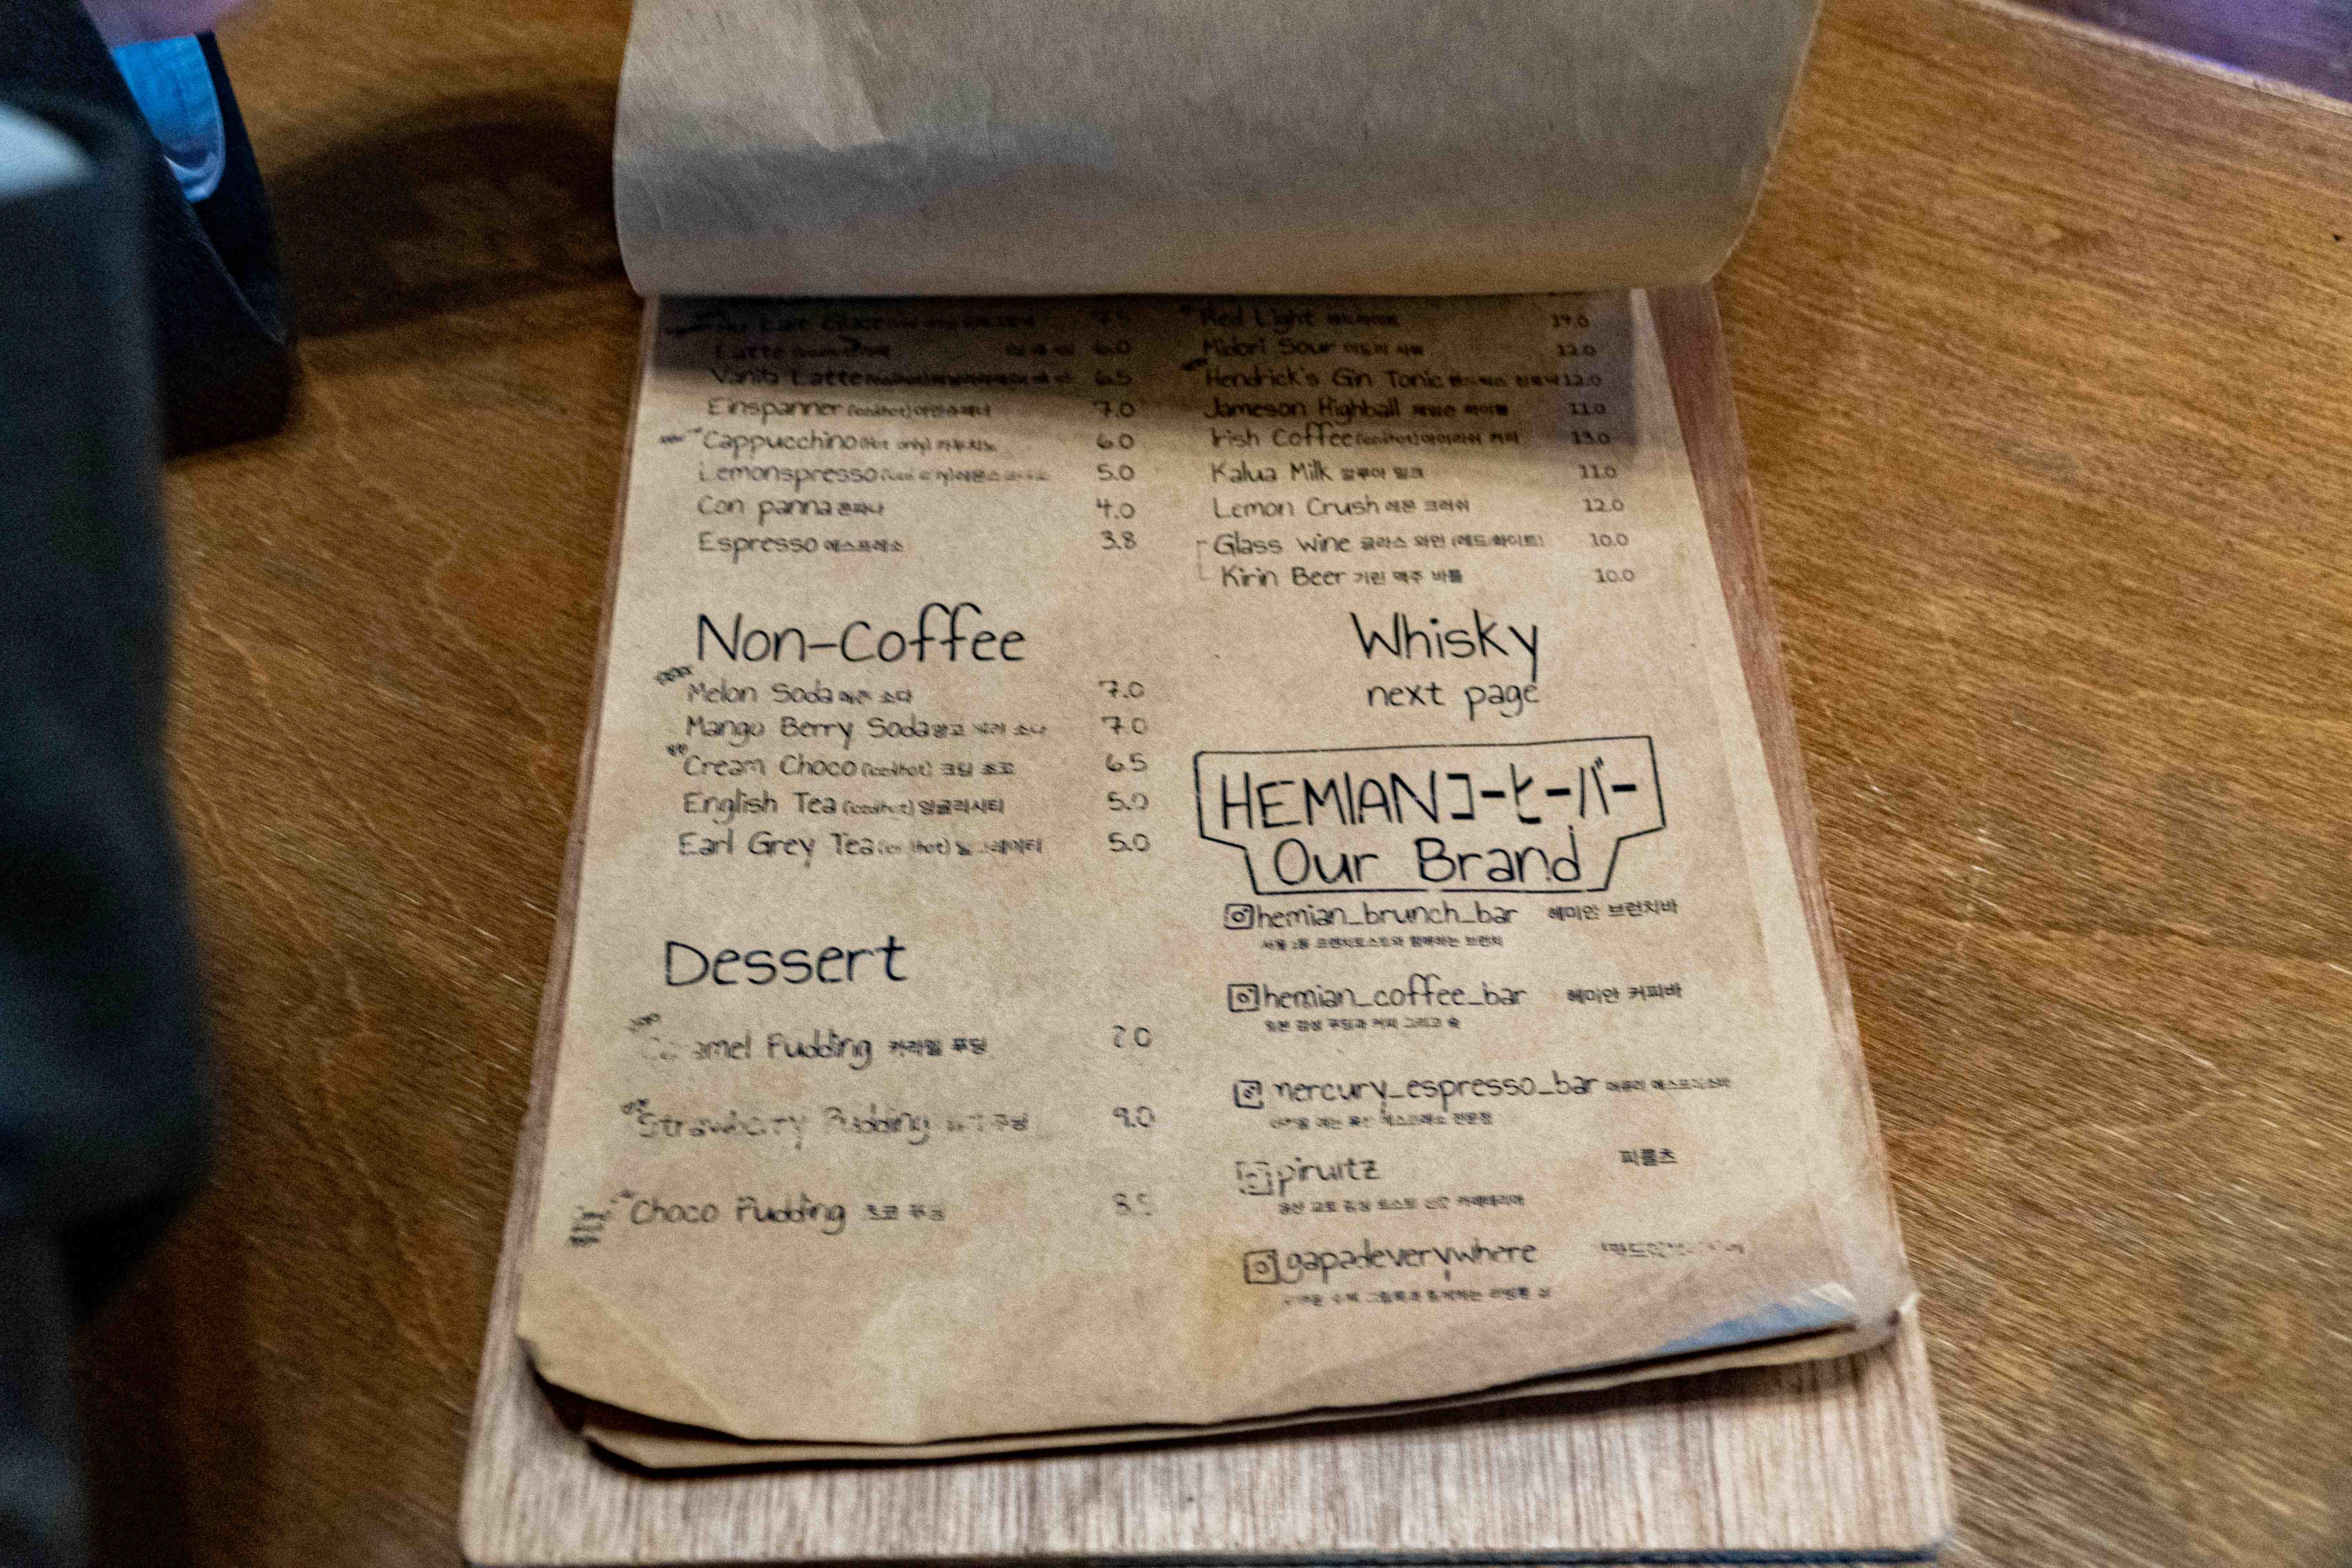 Latte 6.0
Vanila Latte 6.5
Einspanner (iced/hot) 아인슈페너 7.0
Cappucchino (Hot only) 카푸치노 6.0
Lemonspresso 5.0
Con panna 콘파나 4.0
Espresso 에스프레소 3.8
Non-Coffee
Melon Soda 메론 소다 7.0
Mango Berry Soda 망고 베리 소다 7.0
Cream Choco (iced/hot) 크림 초코 6.5
English Tea (iced/hot) 잉글리시티 5.0
Earl Grey Tea 5.0
Dessert
Caramel Pudding 카라멜 푸딩
Strawberry Pudding 9.0
Choco Pudding 초코 푸딩
Red Light 14.0
Midori Sour 미도리 사워 12.0
Hendrick's Gin Tonic 12.0
Jameson Highball 제임슨 하이볼 11.0
Irish Coffee (iced/hot) 아이리쉬 커피 13.0
Kalua Milk 깔루아 밀크 11.0
Lemon Crush 레몬 크러쉬 12.0
Glass wine 글라스 와인 (레드/화이트) 10.0
Kirin Beer 기린 맥주 바틀 10.0
Whisky
next page
HEMIANコーヒーバー
Our Brand
hemian_brunch_bar 헤미안 브런치바
프렌치토스트와 함께하는 브런치
hemian_coffee_bar 헤미안 커피바
일본 감성 푸딩과 커피 그리고 술
mercury_espresso_bar 머큐리 에스프레소바
에스프레소 전문점
piruitz 피룰츠
용산 교토 감성 토스트 카페테리아
gapadeverywhere